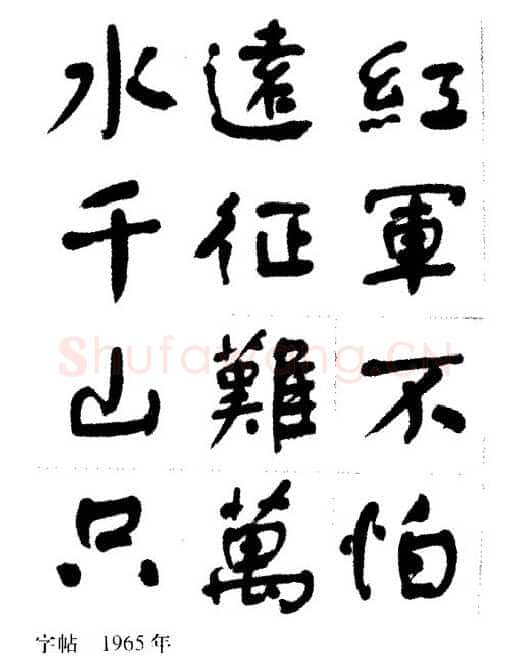 紅軍不怕
遠征難萬
水千山只
字帖 1965年
Shufawang.CN